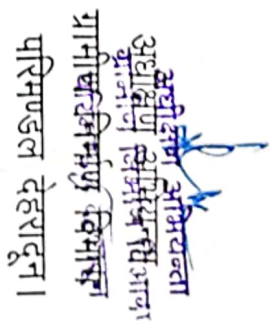 अधीक्षण अभियन्ता
अधीक्षण अभियन्ता
ग्रामीण निर्माण विभाग
परिमण्डल देहरादून।